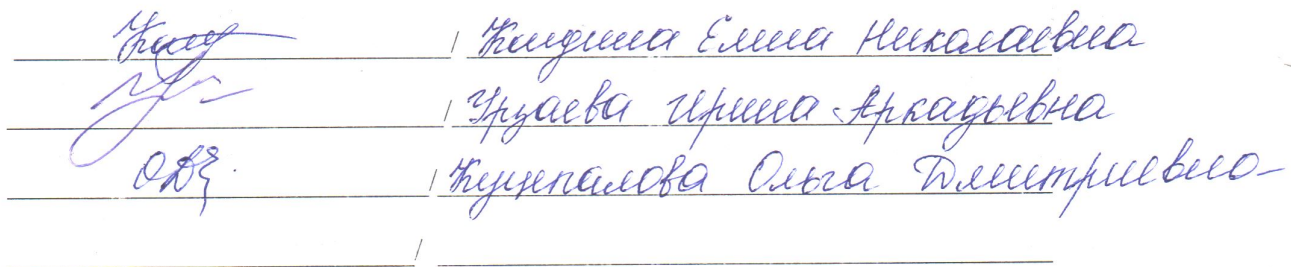 / Кидина Елена Николаевна
/ Урзаева Ирина Аркадьевна
/ Кущепалова Ольга Дмитриевна
/